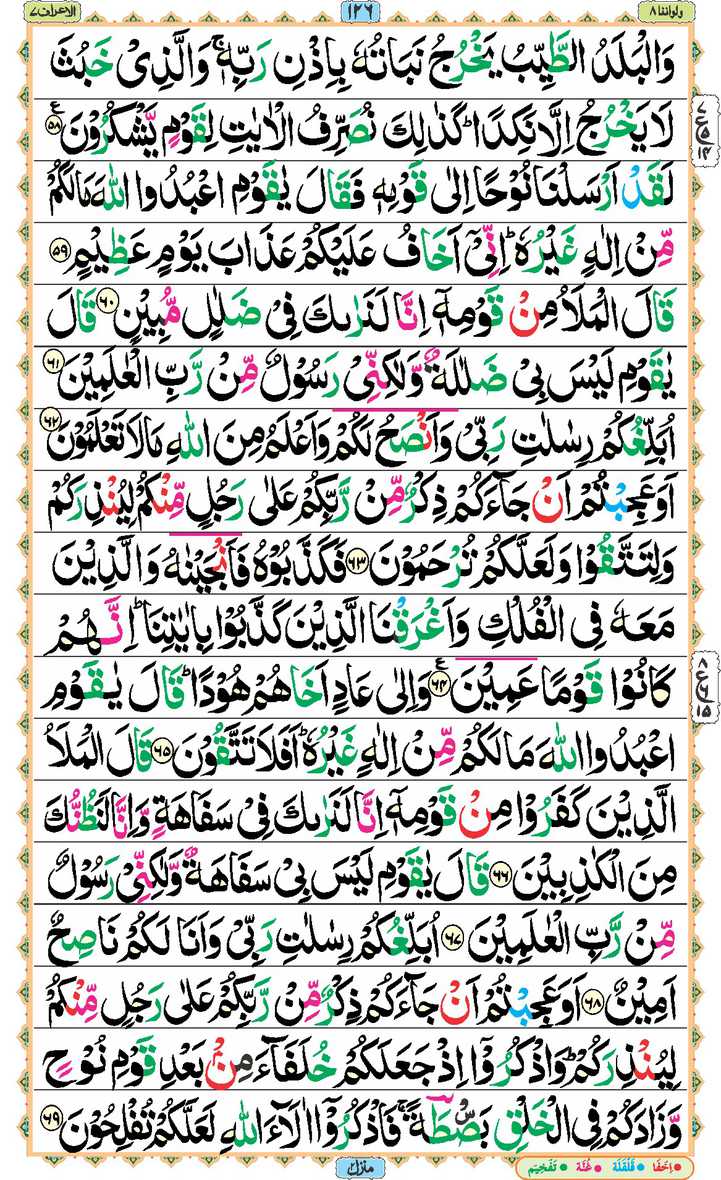 الاعراف ٧
١٢٦
ولواننا ٨
وَالْبَلَدُ الطَّيِّبُ يَخْرُجُ نَبَاتُهٗ بِاِذْنِ رَبِّهٖ ۚ وَالَّذِىْ خَبُثَ
لَا يَخْرُجُ اِلَّا نَكِدًا ؕ كَذٰلِكَ نُصَرِّفُ الْاٰيٰتِ لِقَوْمٍ يَّشْكُرُوْنَ ﴿۵۸﴾
لَقَدْ اَرْسَلْنَا نُوْحًا اِلٰى قَوْمِهٖ فَقَالَ يٰقَوْمِ اعْبُدُوا اللّٰهَ مَا لَكُمْ
مِّنْ اِلٰهٍ غَيْرُهٗ ؕ اِنِّىْۤ اَخَافُ عَلَيْكُمْ عَذَابَ يَوْمٍ عَظِيْمٍ ﴿۵۹﴾
قَالَ الْمَلَاُ مِنْ قَوْمِهٖۤ اِنَّا لَنَرٰىكَ فِىْ ضَلٰلٍ مُّبِيْنٍ ﴿۶۰﴾ قَالَ
يٰقَوْمِ لَيْسَ بِىْ ضَلٰلَةٌ وَّلٰكِنِّىْ رَسُوْلٌ مِّنْ رَّبِّ الْعٰلَمِيْنَ ﴿۶۱﴾
اُبَلِّغُكُمْ رِسٰلٰتِ رَبِّىْ وَاَنْصَحُ لَكُمْ وَاَعْلَمُ مِنَ اللّٰهِ مَا لَا تَعْلَمُوْنَ ﴿۶۲﴾
اَوَعَجِبْتُمْ اَنْ جَآءَكُمْ ذِكْرٌ مِّنْ رَّبِّكُمْ عَلٰى رَجُلٍ مِّنْكُمْ لِيُنْذِرَكُمْ
وَلِتَتَّقُوْا وَلَعَلَّكُمْ تُرْحَمُوْنَ ﴿۶۳﴾ فَكَذَّبُوْهُ فَاَنْجَيْنٰهُ وَالَّذِيْنَ
مَعَهٗ فِى الْفُلْكِ وَاَغْرَقْنَا الَّذِيْنَ كَذَّبُوْا بِاٰيٰتِنَا ؕ اِنَّهُمْ
كَانُوْا قَوْمًا عَمِيْنَ ﴿۶۴﴾ وَاِلٰى عَادٍ اَخَاهُمْ هُوْدًا ؕ قَالَ يٰقَوْمِ
اعْبُدُوا اللّٰهَ مَا لَكُمْ مِّنْ اِلٰهٍ غَيْرُهٗ ؕ اَفَلَا تَتَّقُوْنَ ﴿۶۵﴾ قَالَ الْمَلَاُ
الَّذِيْنَ كَفَرُوْا مِنْ قَوْمِهٖۤ اِنَّا لَنَرٰىكَ فِىْ سَفَاهَةٍ وَّاِنَّا لَنَظُنُّكَ
مِنَ الْكٰذِبِيْنَ ﴿۶۶﴾ قَالَ يٰقَوْمِ لَيْسَ بِىْ سَفَاهَةٌ وَّلٰكِنِّىْ رَسُوْلٌ
مِّنْ رَّبِّ الْعٰلَمِيْنَ ﴿۶۷﴾ اُبَلِّغُكُمْ رِسٰلٰتِ رَبِّىْ وَاَنَا لَكُمْ نَاصِحٌ
اَمِيْنٌ ﴿۶۸﴾ اَوَعَجِبْتُمْ اَنْ جَآءَكُمْ ذِكْرٌ مِّنْ رَّبِّكُمْ عَلٰى رَجُلٍ مِّنْكُمْ
لِيُنْذِرَكُمْ ؕ وَاذْكُرُوْۤا اِذْ جَعَلَكُمْ خُلَفَآءَ مِنْۢ بَعْدِ قَوْمِ نُوْحٍ
وَّزَادَكُمْ فِى الْخَلْقِ بَصْۜطَةً ۚ فَاذْكُرُوْۤا اٰلَآءَ اللّٰهِ لَعَلَّكُمْ تُفْلِحُوْنَ ﴿۶۹﴾
منزل ٢
اِخفَا قَلْقَلَة غُنَّه تَفْخِيْم